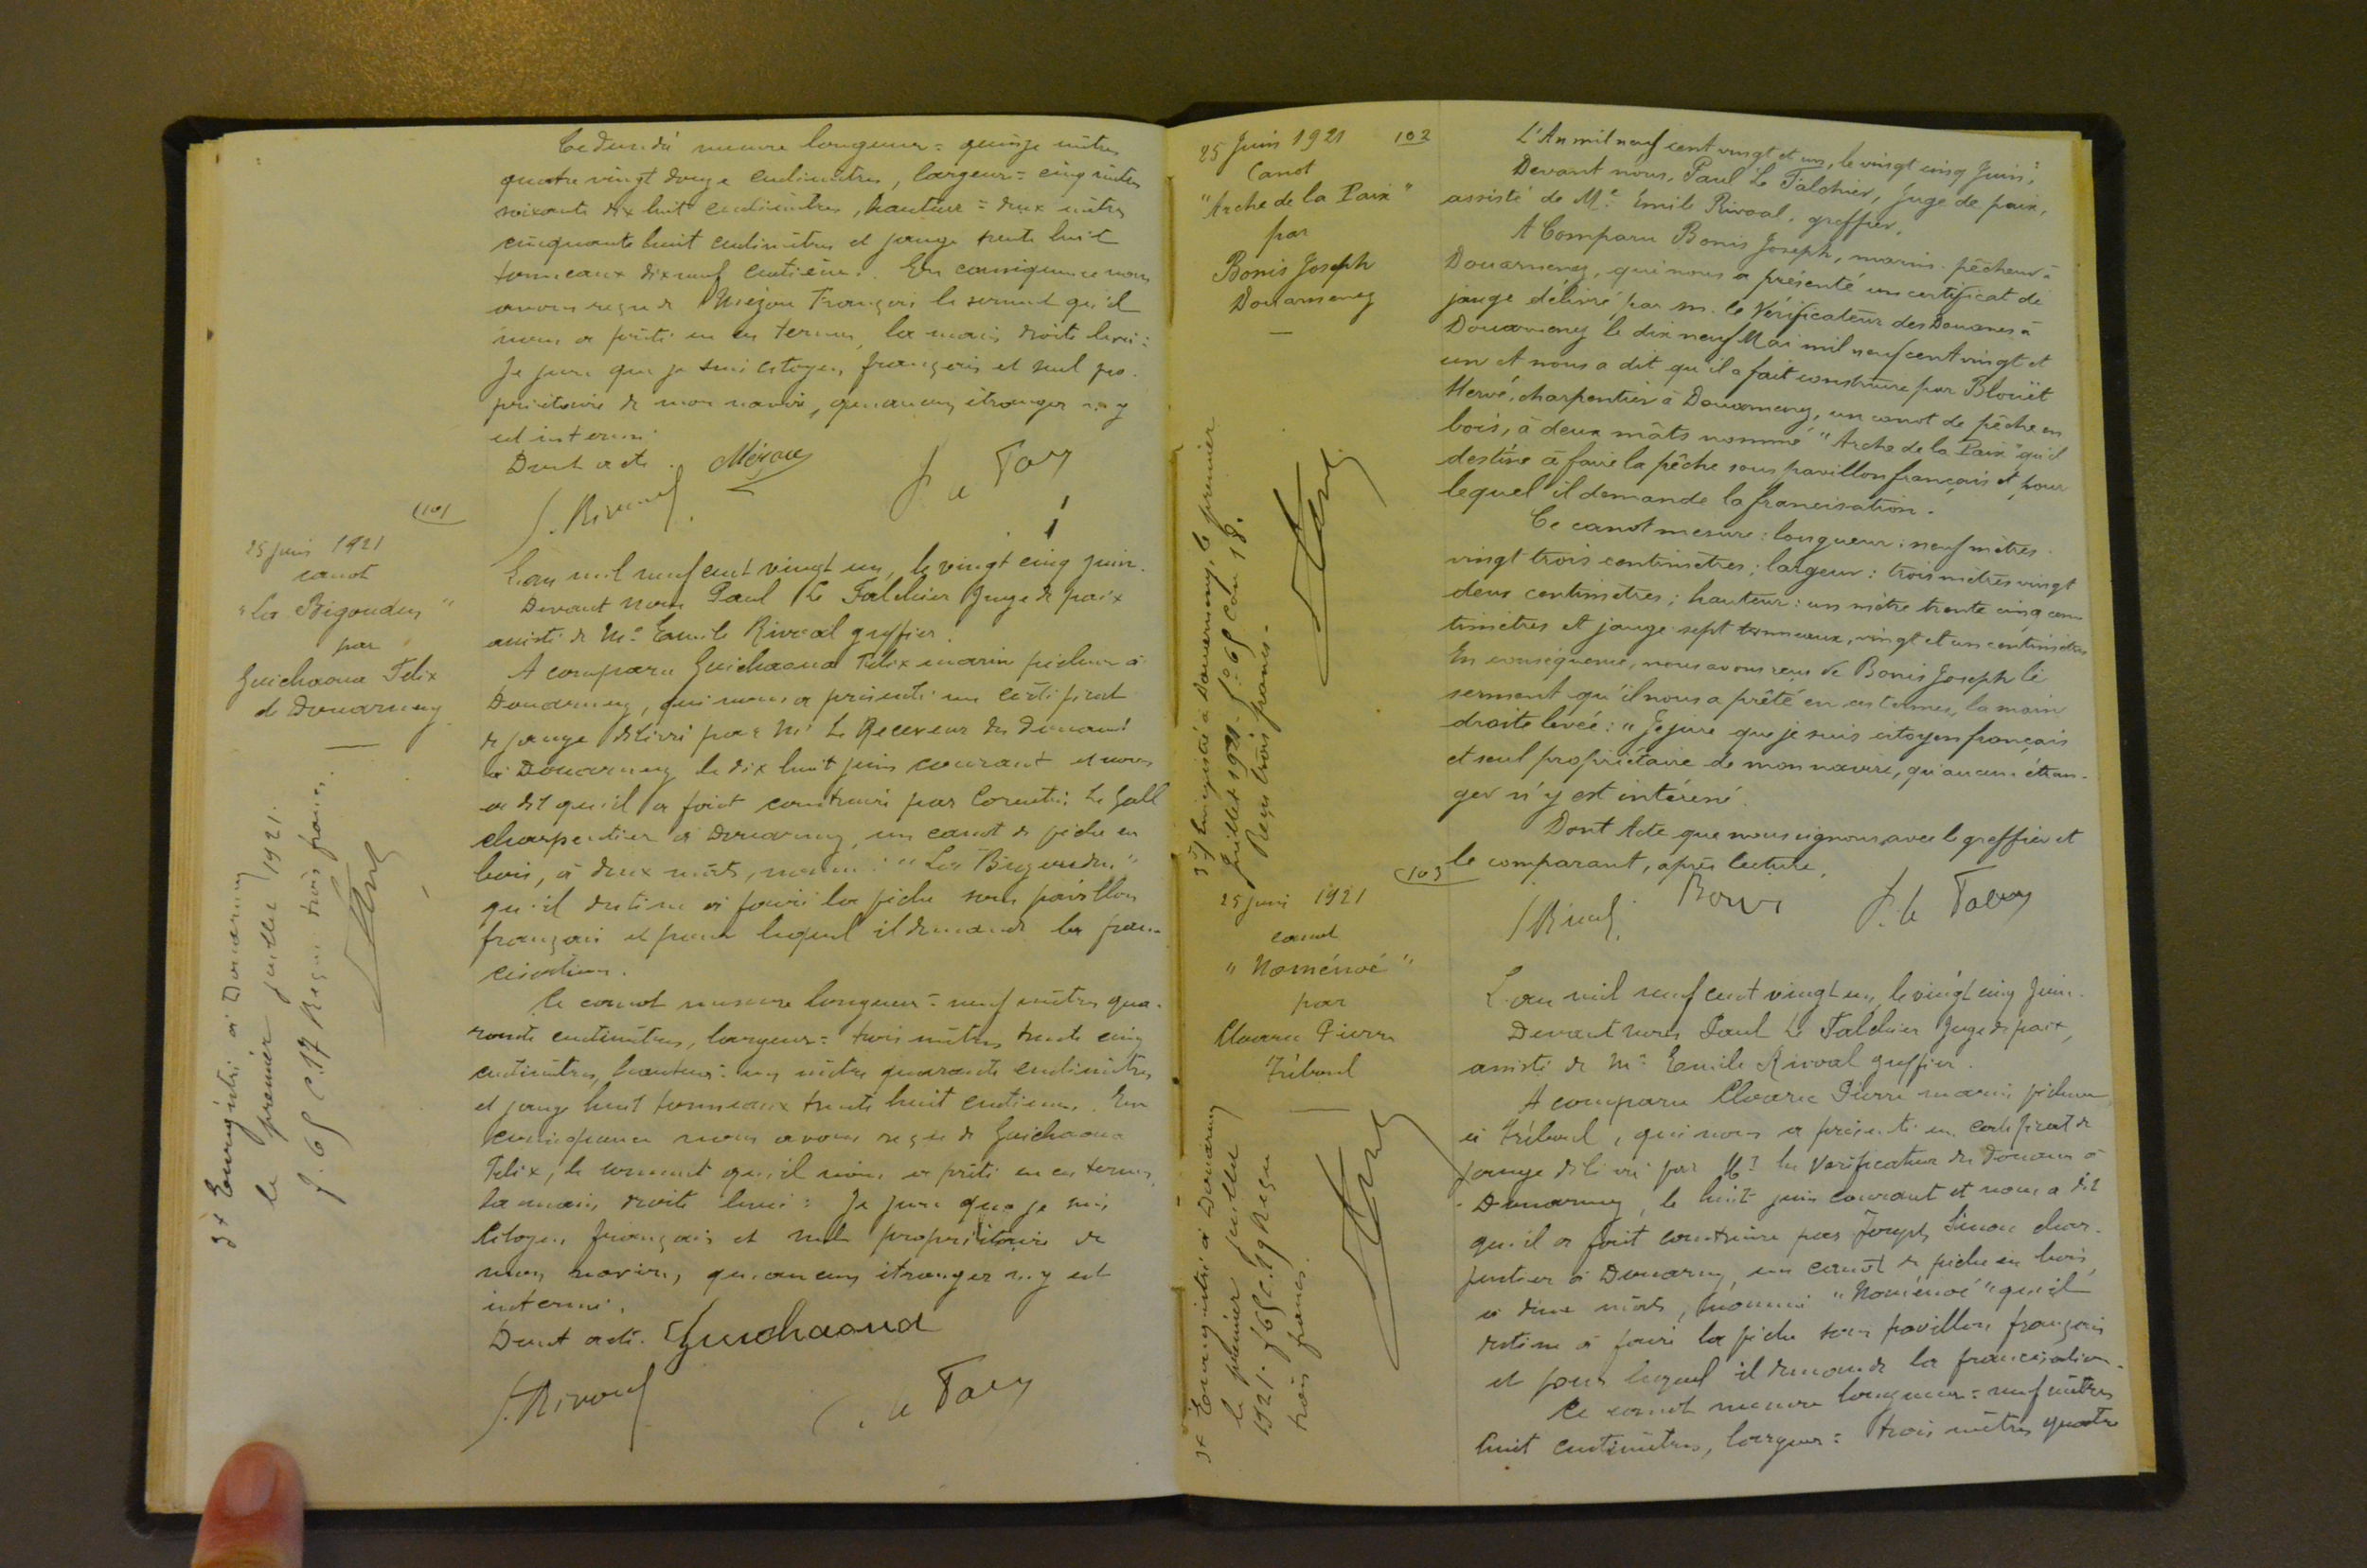 Ce dundé mesure longueur = quinze mètres
quatre vingt douze centimètres, largeur = cinq mètres
soixante dix huit centimètres, hauteur = deux mètres
cinquante huit centimètres et jauge trente huit
tonneaux dix neuf centièmes. En conséquence nous
avons reçu de Mézou François le serment qu'il
nous a prêté en ces termes, la main droite levée :
Je jure que je suis citoyen français et seul pro-
priétaire de mon navire, qu'aucun étranger n'y
est interessé.
Dont acte.
101
25 juin 1921
canot
"La Bigouden"
par
Guichaoua Felix
de Douarnenez
3f Enregistré à Douarnenez
le premier juillet 1921.
f. 65 c. 17 Reçu trois francs.
L'an mil neuf cent vingt un, le vingt cinq juin.
Devant nous Paul Le Falchier Juge de paix
assisté de Me Emile Rivoal greffier.
A comparu Guichaoua Felix marin pêcheur à
Douarnenez, qui nous a présenté un certificat
de jauge délivré par Mr Le Receveur des Douanes
à Douarnenez le dix huit juin courant et nous
a dit qu'il a fait construire par Corentin Le Gall
charpentier à Douarnenez, un canot de pêche en
bois, à deux mâts, nommé : "La Bigouden"
qu'il destine à faire la pêche sous pavillon
français et pour lequel il demande la fran-
cisation.
Ce canot mesure longueur = neuf mètres qua-
rante centimètres, largeur = trois mètres trente cinq
centimètres, hauteur = un mètre quarante centimètres
et jauge huit tonneaux trente huit centièmes. En
conséquence nous avons reçu de Guichaoua
Felix, le serment qu'il nous a prêté en ces termes,
la main droite levée : Je jure que je suis
citoyen français et seul propriétaire de
mon navire, qu'aucun étranger n'y est
interessé.
Dont acte. Guichaoua
J. Rivoal
25 Juin 1921 102
Canot
"Arche de la Paix"
par
Bonis Joseph
Douarnenez
3f Enregistré à Douarnenez, le premier
Juillet 1921. fo 65 Case 18.
Reçu trois francs.
L'An mil neuf cent vingt et un, le vingt cinq Juin ;
Devant nous, Paul Le Falchier, Juge de paix,
assisté de Me Émile Rivoal, greffier,
A Comparu Bonis Joseph, marin-pêcheur à
Douarnenez, qui nous a présenté un certificat de
jauge délivré par m. le Vérificateur des Douanes à
Douarnenez le dix neuf Mai mil neuf cent vingt et
un et nous a dit qu'il a fait construire par Blouët
Hervé, charpentier à Douarnenez, un canot de pêche en
bois, à deux mâts nommé "Arche de la Paix" qu'il
destine à faire la pêche sous pavillon français et pour
lequel il demande la francisation.
Ce canot mesure : longueur : neuf mètres
vingt trois centimètres ; largeur : trois mètres vingt
deux centimètres ; hauteur : un mètre trente cinq cen-
timètres et jauge sept tonneaux, vingt et un centimètres
En conséquence, nous avons reçu de Bonis Joseph le
serment qu'il nous a prêté en ces termes, la main
droite levée : "Je jure que je suis citoyen français
et seul propriétaire de mon navire, qu'aucun étran-
ger n'y est intéressé.
Dont Acte que nous signons avec le greffier et
le comparant, après lecture,
103
25 juin 1921
canot
"Noménoé"
par
Cloarec Pierre
Tréboul
3f Enregistré à Douarnenez
le premier juillet
1921. f 65 c. 19 Reçu
trois francs.
L'an mil neuf cent vingt un, le vingt cinq Juin.
Devant nous Paul Le Falchier Juge de paix,
assisté de Me Emile Rivoal greffier.
A comparu Cloarec Pierre marin pêcheur
à Tréboul, qui nous a présenté un certificat de
jauge délivré par Mr le Vérificateur des Douanes à
Douarnenez, le huit juin courant et nous a dit
qu'il a fait construire par Joseph Simon char-
pentier à Douarnenez, un canot de pêche en bois,
à deux mâts, nommé "Noménoé" qu'il
destine à faire la pêche sous pavillon français
et pour lequel il demande la francisation.
Ce canot mesure longueur = neuf mètres
huit centimètres, largeur = trois mètres quatre